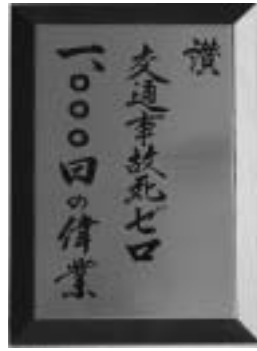 讃
交通事故死ゼロ
一、〇〇〇日の偉業